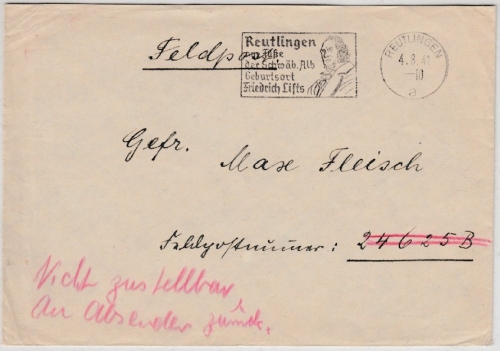 Feldpost
Reutlingen
am Fuße
der Schwäb. Alb
Geburtsort
Friedrich Lists
REUTLINGEN
4.8.41
-10
a
Gefr. Max Fleisch
Feldpostnummer: 24625B
Nicht zustellbar
An Absender zurück.